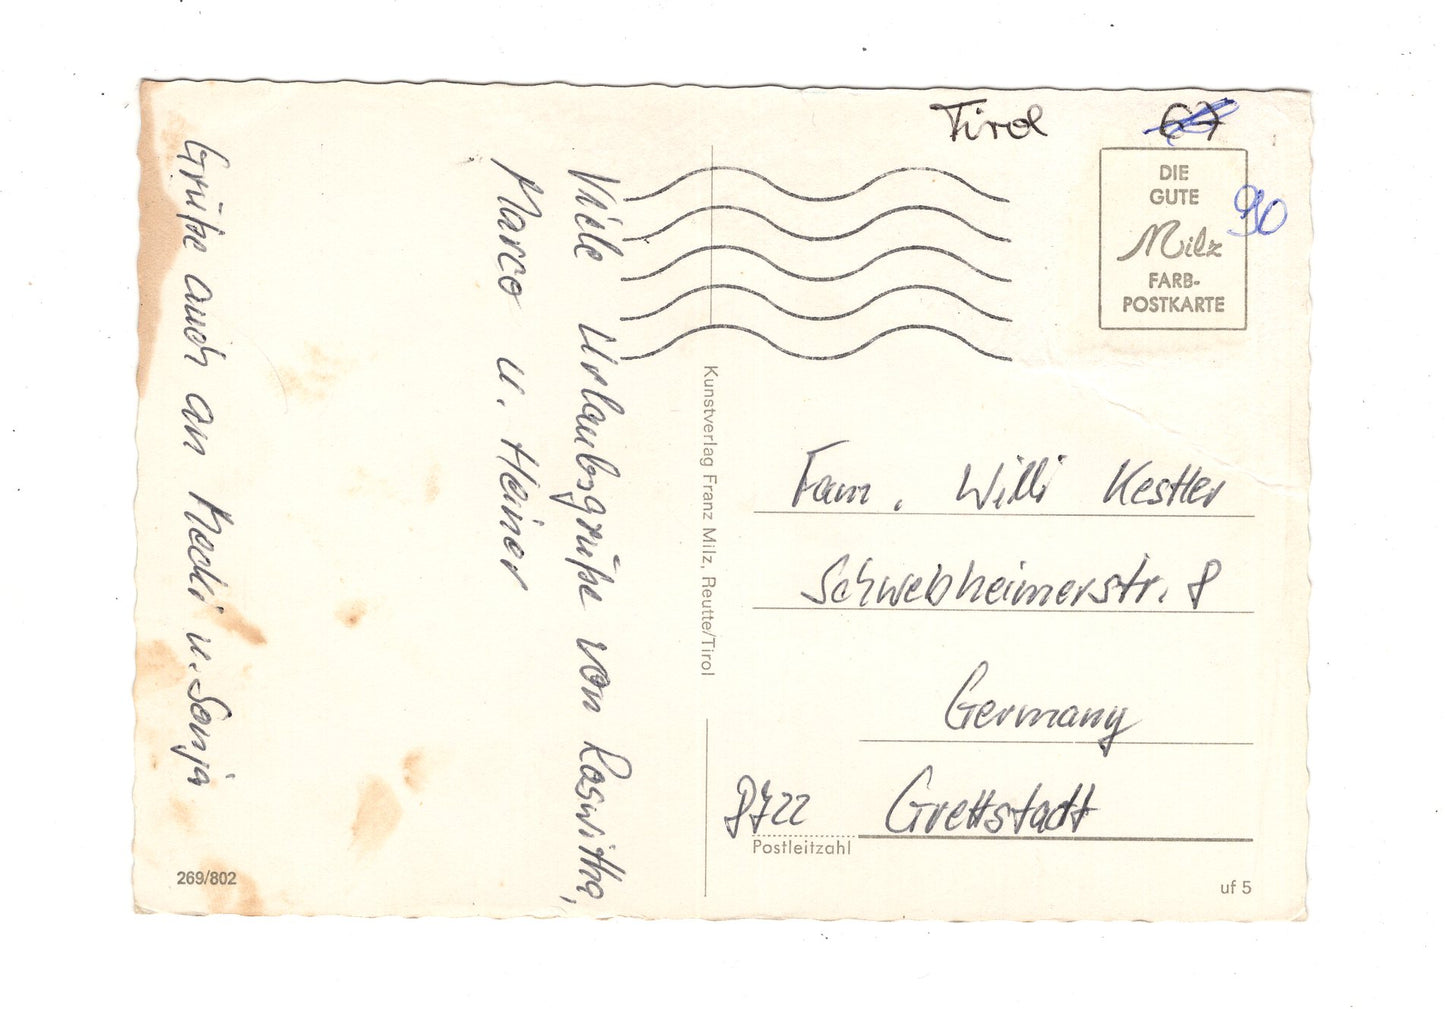 Viele Urlaubsgrüße von Roswitha,
Marco u. Heiner
Grüße auch an Mecki u. Sonja
269/802
Kunstverlag Franz Milz, Reutte/Tirol
Tirol
67
DIE
GUTE
Milz
FARB-
POSTKARTE
90
Fam. Willi Kestler
Schwebheimerstr. 8
Germany
8722 Grettstadt
Postleitzahl
uf 5